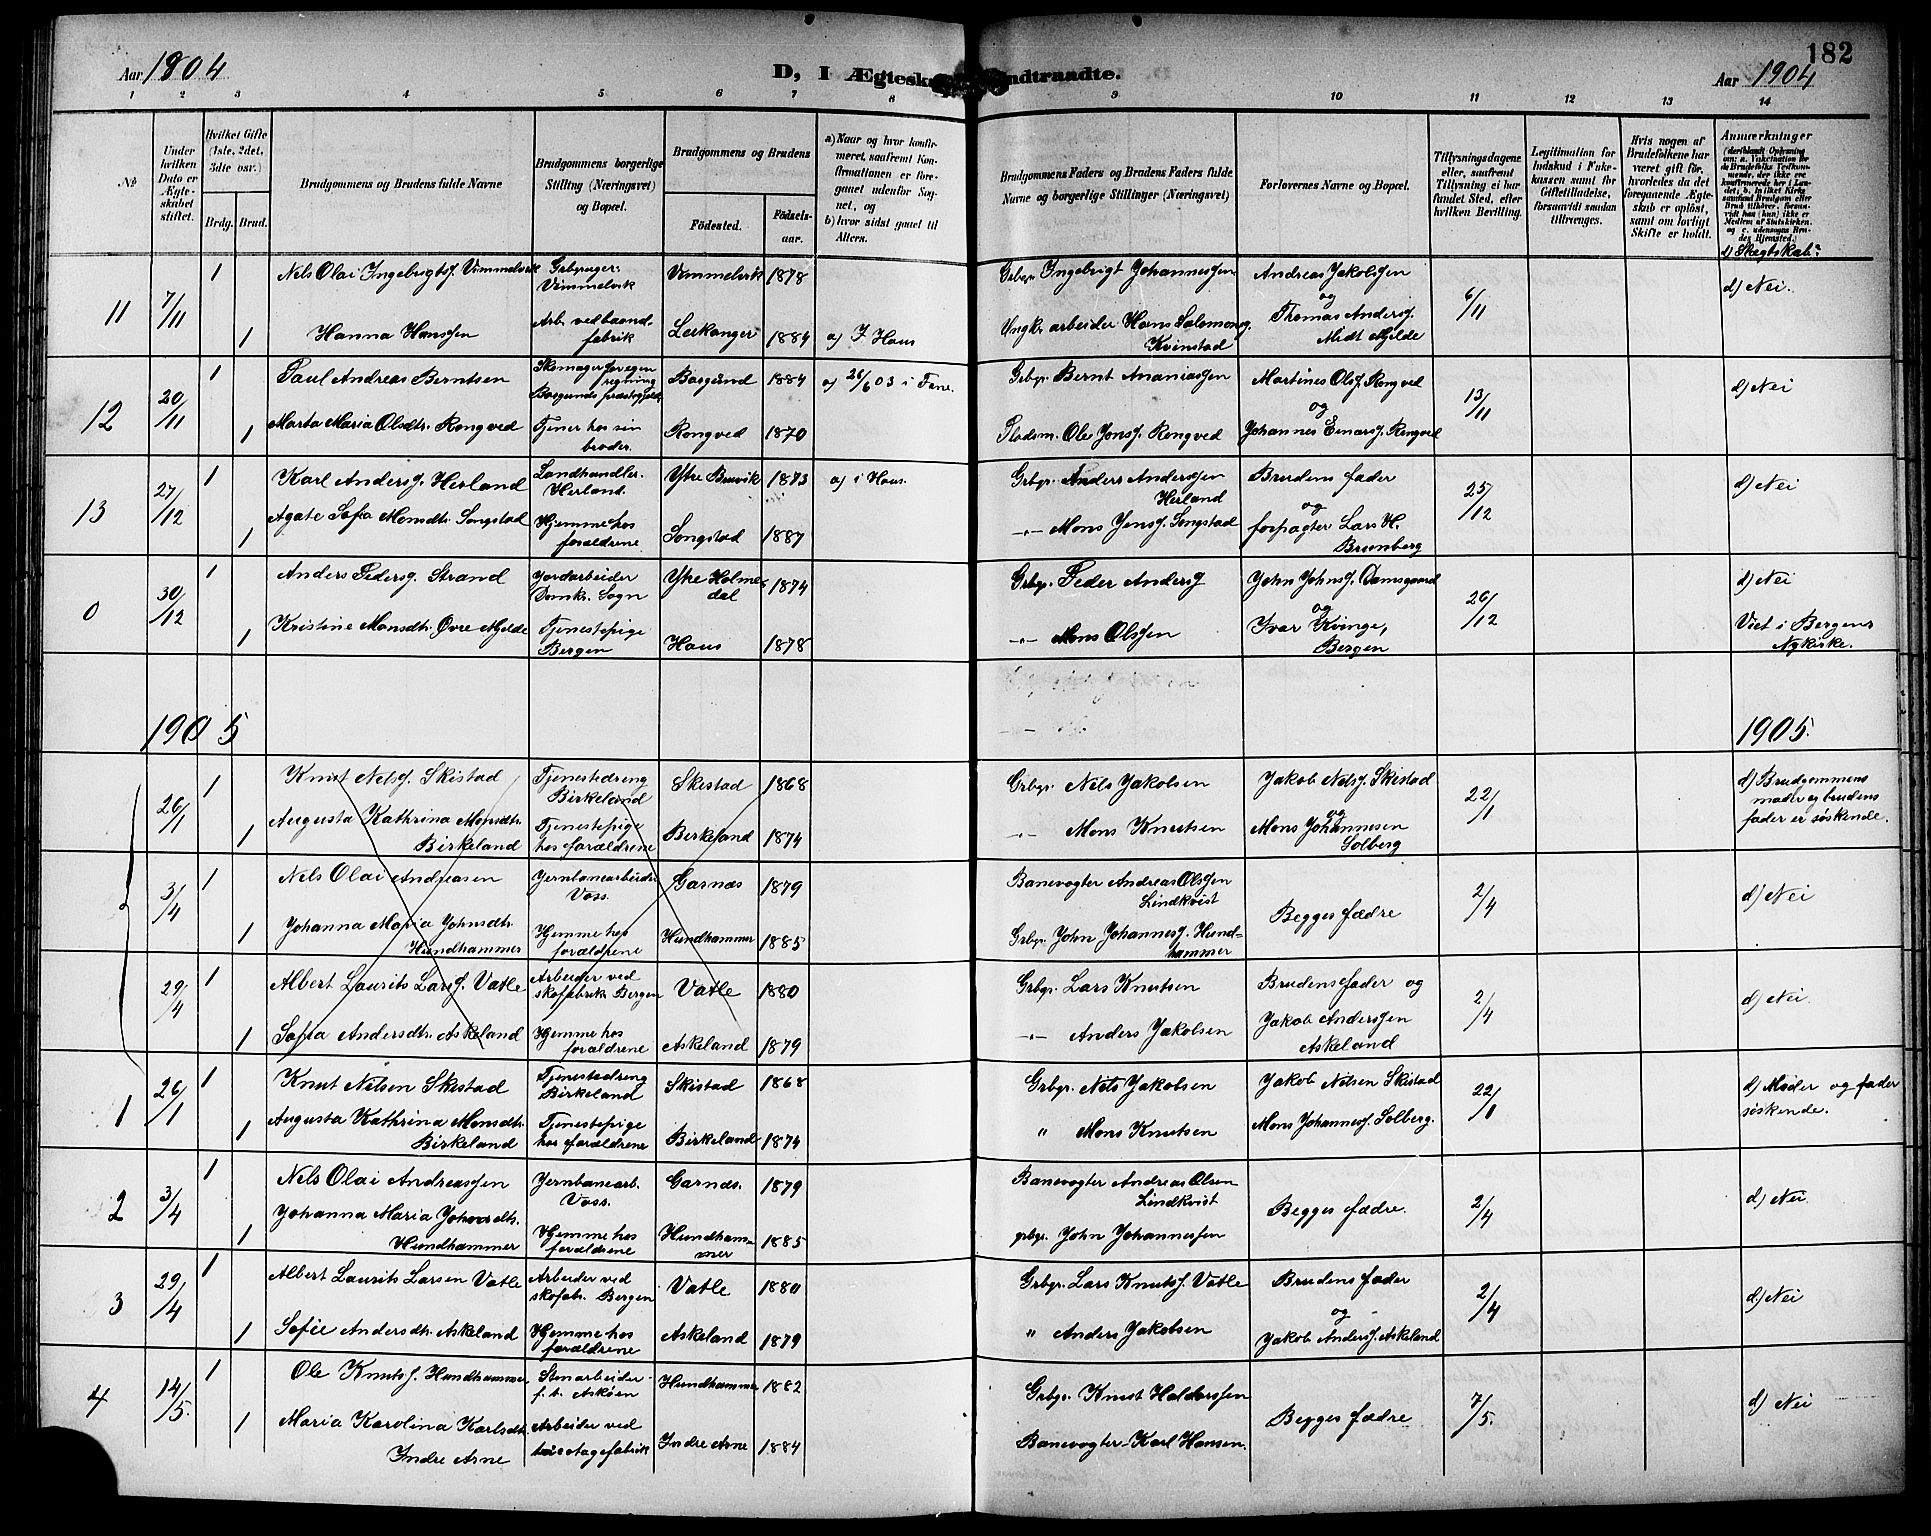 182
Aar 1904
D, I Ægtesk ndtraadte.
Aar 1904
1 2 3 4 5 6 7 8 9 10 11 12 13 14
No
Under hvilken Dato er Ægteskabet stiftet.
Hvilket Gifte (1ste, 2det, 3die osv.)
Brdg. Brud.
Brudgommens og Brudens fulde Navne
Brudgommens borgerlige Stilling (Næringsvei) og Bopæl.
Brudgommens og Brudens
Födested.
Födselsaar.
a) Naar og hvor konfirmeret, saafremt Konfirmationen er foregaaet udenfor Sognet, og
b) hvor sidst gaaet til Alters.
Brudgommens Faders og Brudens Faders fulde Navne og borgerlige Stillinger (Næringsvei)
Forlovernes Navne og Bopæl.
Tillysningsdagene eller, saafremt Tillysning ei har fundet Sted, efter hvilken Bevilling.
Legitimation for Indskud i Enkekassen samt for Giftetilladelse, forsaavidt saadan tiltrænges.
Hvis nogen af Brudefolkene har været gift för, hvorledes da det foregaaende Ægteskab er oplöst, samt om lovligt Skifte er holdt.
Anmærkninger
d) Slegtskab:
11 7/11 1 Nils Olai Ingebrigtsj. Vimmelvik Grbruger: Vimmelvik Vimmelvik 1878 Grbgr. Ingebrigt Johannessen Andreas Jakobsen og 6/11 d) Nei.
1 Hanna Hansen Arb. ved baandfabrik Leikanger 1884 a) I Haus Ungk. arbeider Hans Salomonsj. Kvinstad Thomas Andersj. Midt Mjelde
12 20/11 1 Paul Andreas Berntsen Skomager for egen regning Borgunds præstegjeld Borgund 1884 a) 26/6 03 i Fane. Grbgr. Bernt Ananiassen Martines Olsj. Rongved og 13/11 d) Nei
1 Marta Maria Olsdtr. Rongved Tjener hos sin broder. Rongved 1870 Pladsm. Ole Jonsj. Rongved Johannes Einarsj. Rongved
13 27/12 1 Karl Andersj. Herland Landhandler. Herland. Ytre Bruvik 1873 a) i Haus. Grbgr. Anders Anderssen Herland Brudens fader og 25/12 d) Nei
1 Agate Sofia Monsdtr. Songstad Hjemme hos forældrene Songstad 1887 -"- Mons Jensj. Songstad forpagter Lars H. Brunberg
0 30/12 1 Anders Pedersj. Strand Jordarbeider Domk. Sogn Ytre Holmedal 1874 Grbgr. Peder Andersj John Johnsj. Damsgaard og 26/12 d) Nei
1 Kristine Monsdtr. Øvre Mjelde Tjenestepige Bergen Haus 1878 -"- Mons Olssen Ivar Kvinge, Bergen Viet i Bergens Nykirke.
1905 1905.
26/1 1 Knut Nelsj. Skistad Tjenestedreng Birkeland Skistad 1868 Grbgr. Nels Jakobsen Jakob Nelsj. Skistad og 22/1 d) Brudgommens moder og brudens fader er søskende.
1 Augusta Kathrina Monsdtr. Birkeland Tjenestepige hos forældrene Birkeland 1874 -"- Mons Knutsen Mons Johannesen Solberg
3/4 1 Nels Olai Andreasen Jernbanearbeider Voss. Garnæs 1879 Banevogter Andreas Olssen Lindkvist Begges fædre 2/4 d) Nei
1 Johanna Maria Johnsdtr. Hundhammer Hjemme hos forældrene Hundhammer 1885 Grbgr. John Johannesj. Hundhammer
29/4 1 Albert Laurits Larsj. Vatle Arbeider ved skofabrik Bergen Vatle 1880 Grbgr. Lars Knutsen Brudens fader og 2/4 d) Nei
1 Sofia Andersdtr. Askeland Hjemme hos forældrene Askeland 1879 -"- Anders Jakobsen Jakob Anderssen Askeland
1 26/1 1 Knut Nilsen Skistad Tjenestedreng Birkeland Skistad 1868 Grbgr. Nels Jakobsen Jakob Nelsen Skistad 22/1 d) Moder og fader søskende.
1 Augusta Kathrina Monsdtr. Birkeland Tjenestepige hos forældrene Birkeland 1874 " Mons Knutsen Mons Johannesj. Solberg.
2 3/4 1 Nels Olai Andreassen Jernbanearb. Voss. Garnæs. 1879 Banevogter Andreas Olsen Lindkvist Begges fædre. 2/4 d) Nei.
1 Johanna Maria Johnsdtr. Hundhammer Hjemme hos forældrene Hundhammer 1885 grbgr. John Johannessen
3 29/4 1 Albert Laurits Larsen Vatle Arbeider ved skofabr. Bergen Vatle 1880 Grbgr. Lars Knutsj. Vatle Brudens fader og 2/4 d) Nei
1 Sofie Andersdtr. Askeland Hjemme hos forældrene Askeland 1879 " Anders Jakobsen Jakob Andersj. Askeland
4 14/5. 1 Ole Knutsj. Hundhammer Stenarbeider f. t. Askøen Hundhammer 1882 Grbgr. Knut Haldorssen Begges fædre 7/5. d) Nei
1 Maria Karolina Karlsdtr. Indre Arne Arbeider ved fabrik Indre Arne 1884 Banevogter Karl Hansen.